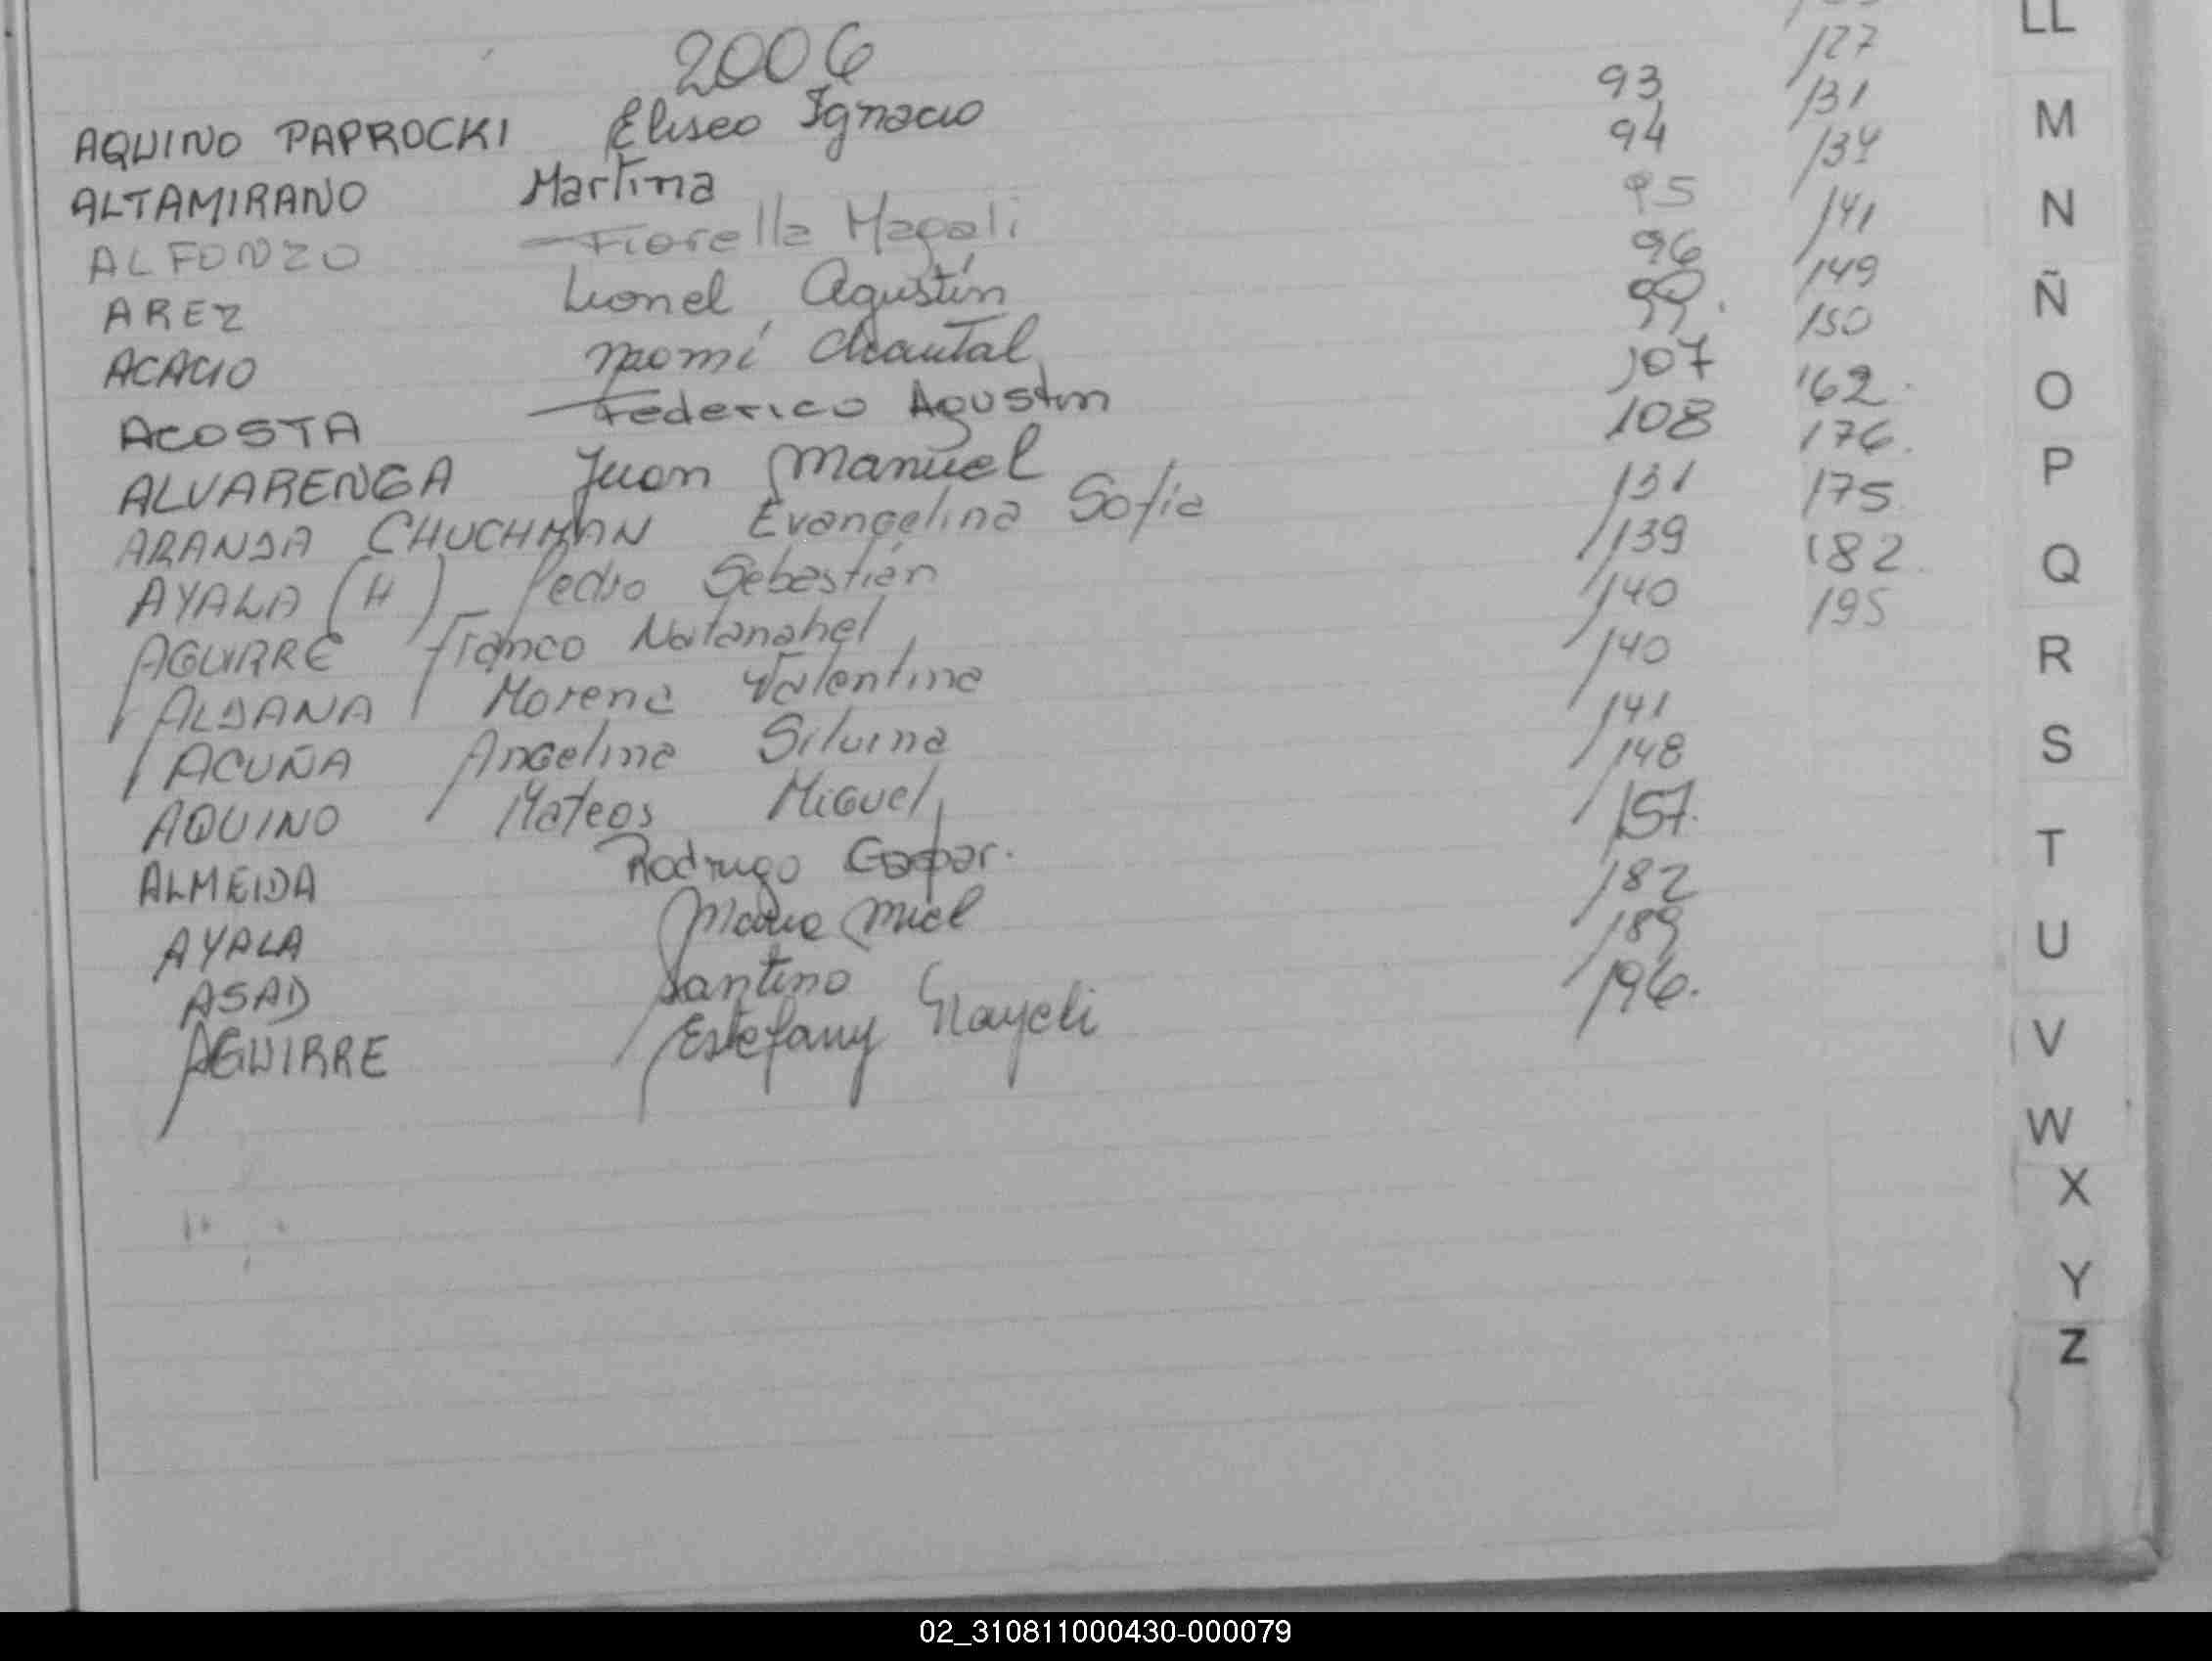 2006
AQUINO PAPROCKI Eliseo Ignacio 93
ALTAMIRANO Martina 94
ALFONZO Fiorella Magali 95
AREZ Lionel Agustín 96
ACACIO Naomí Chantal 99.
ACOSTA Federico Agustin 107
ALVARENGA Juan Manuel 108
ARANDA CHUCHMAN Evangelina Sofia 131
AYALA (H) Pedro Sebastián 139
AGUIRRE Franco Natanahel 140
ALDANA Morena Valentina 140
ACUÑA Angelina Silvina 141
AQUINO Mateos Miguel 148
ALMEIDA Rodrigo Gaspar. 157.
AYALA Maria Miel 182
ASAD Santino 189
AGUIRRE Estefany Nayeli 196.
127
131
134
141
149
150
162.
176.
175
182
195
LL
M
N
Ñ
O
P
Q
R
S
T
U
V
W
X
Y
Z
02_310811000430-000079